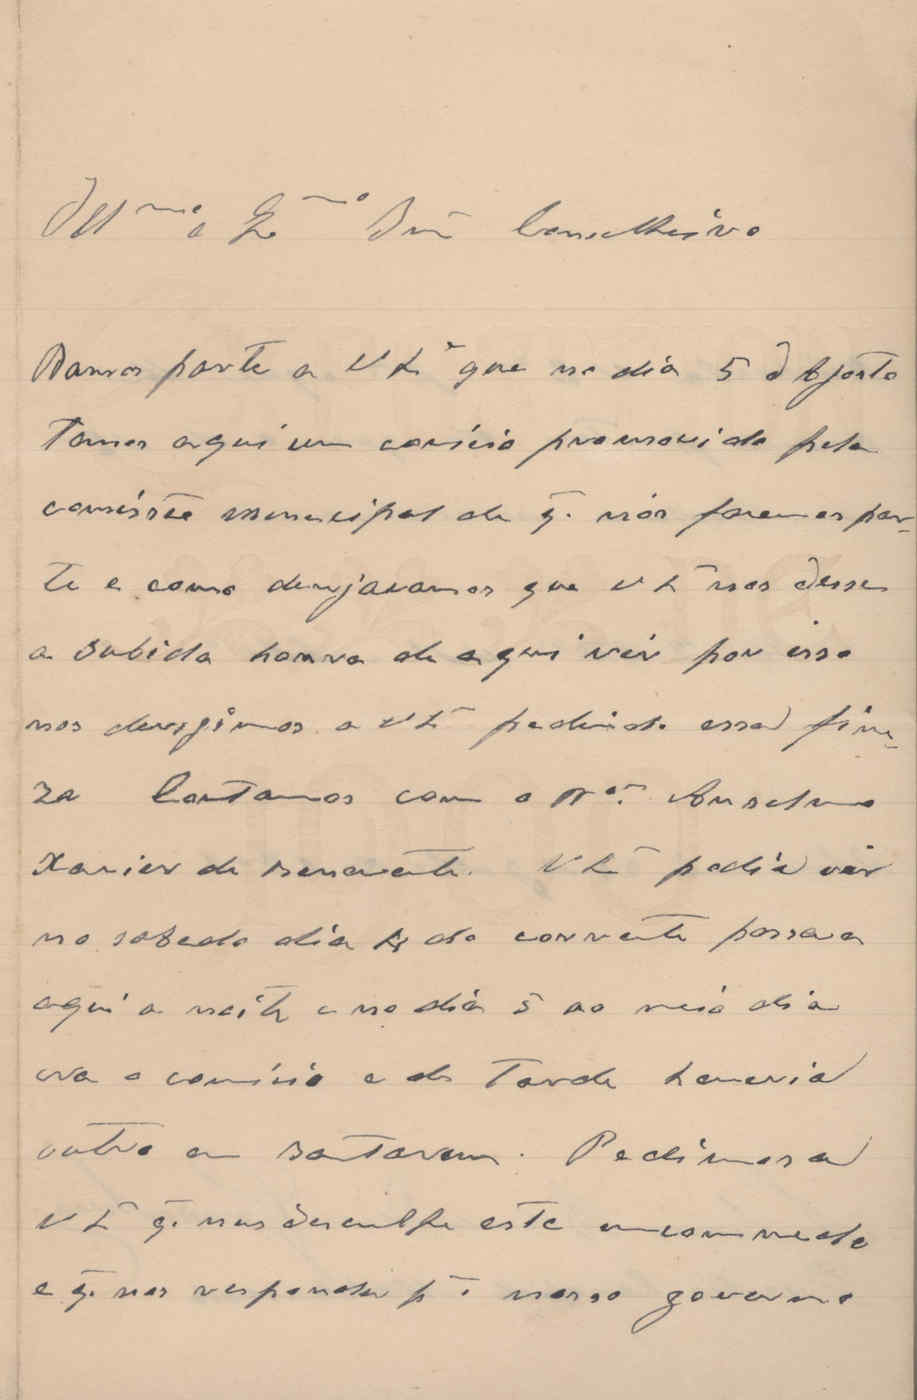 Illmo e Exmo Snr Conselheiro
Damos parte a V Exª que no dia 5 d Agosto
Temos aqui um comicio promovido pela
comissão municipal de q. nós fazemos par-
te e como desejavamos que V Exª nos desse
a subida honra de aqui vir por isso
nos derigimos a V Exª pedindo essa fine-
za Contamos com o Nosso Anselmo
Xavier de Benavente. V Exª podia vir
no sabado dia 4 do corrente passava
aqui a noite e no dia 5 ao meio dia
era o comicio e de Tarde haveria
outro em Santarem. Pedimos a
V Exª q. nos desculpe este encommodo
e q. nos responda pª nosso governo